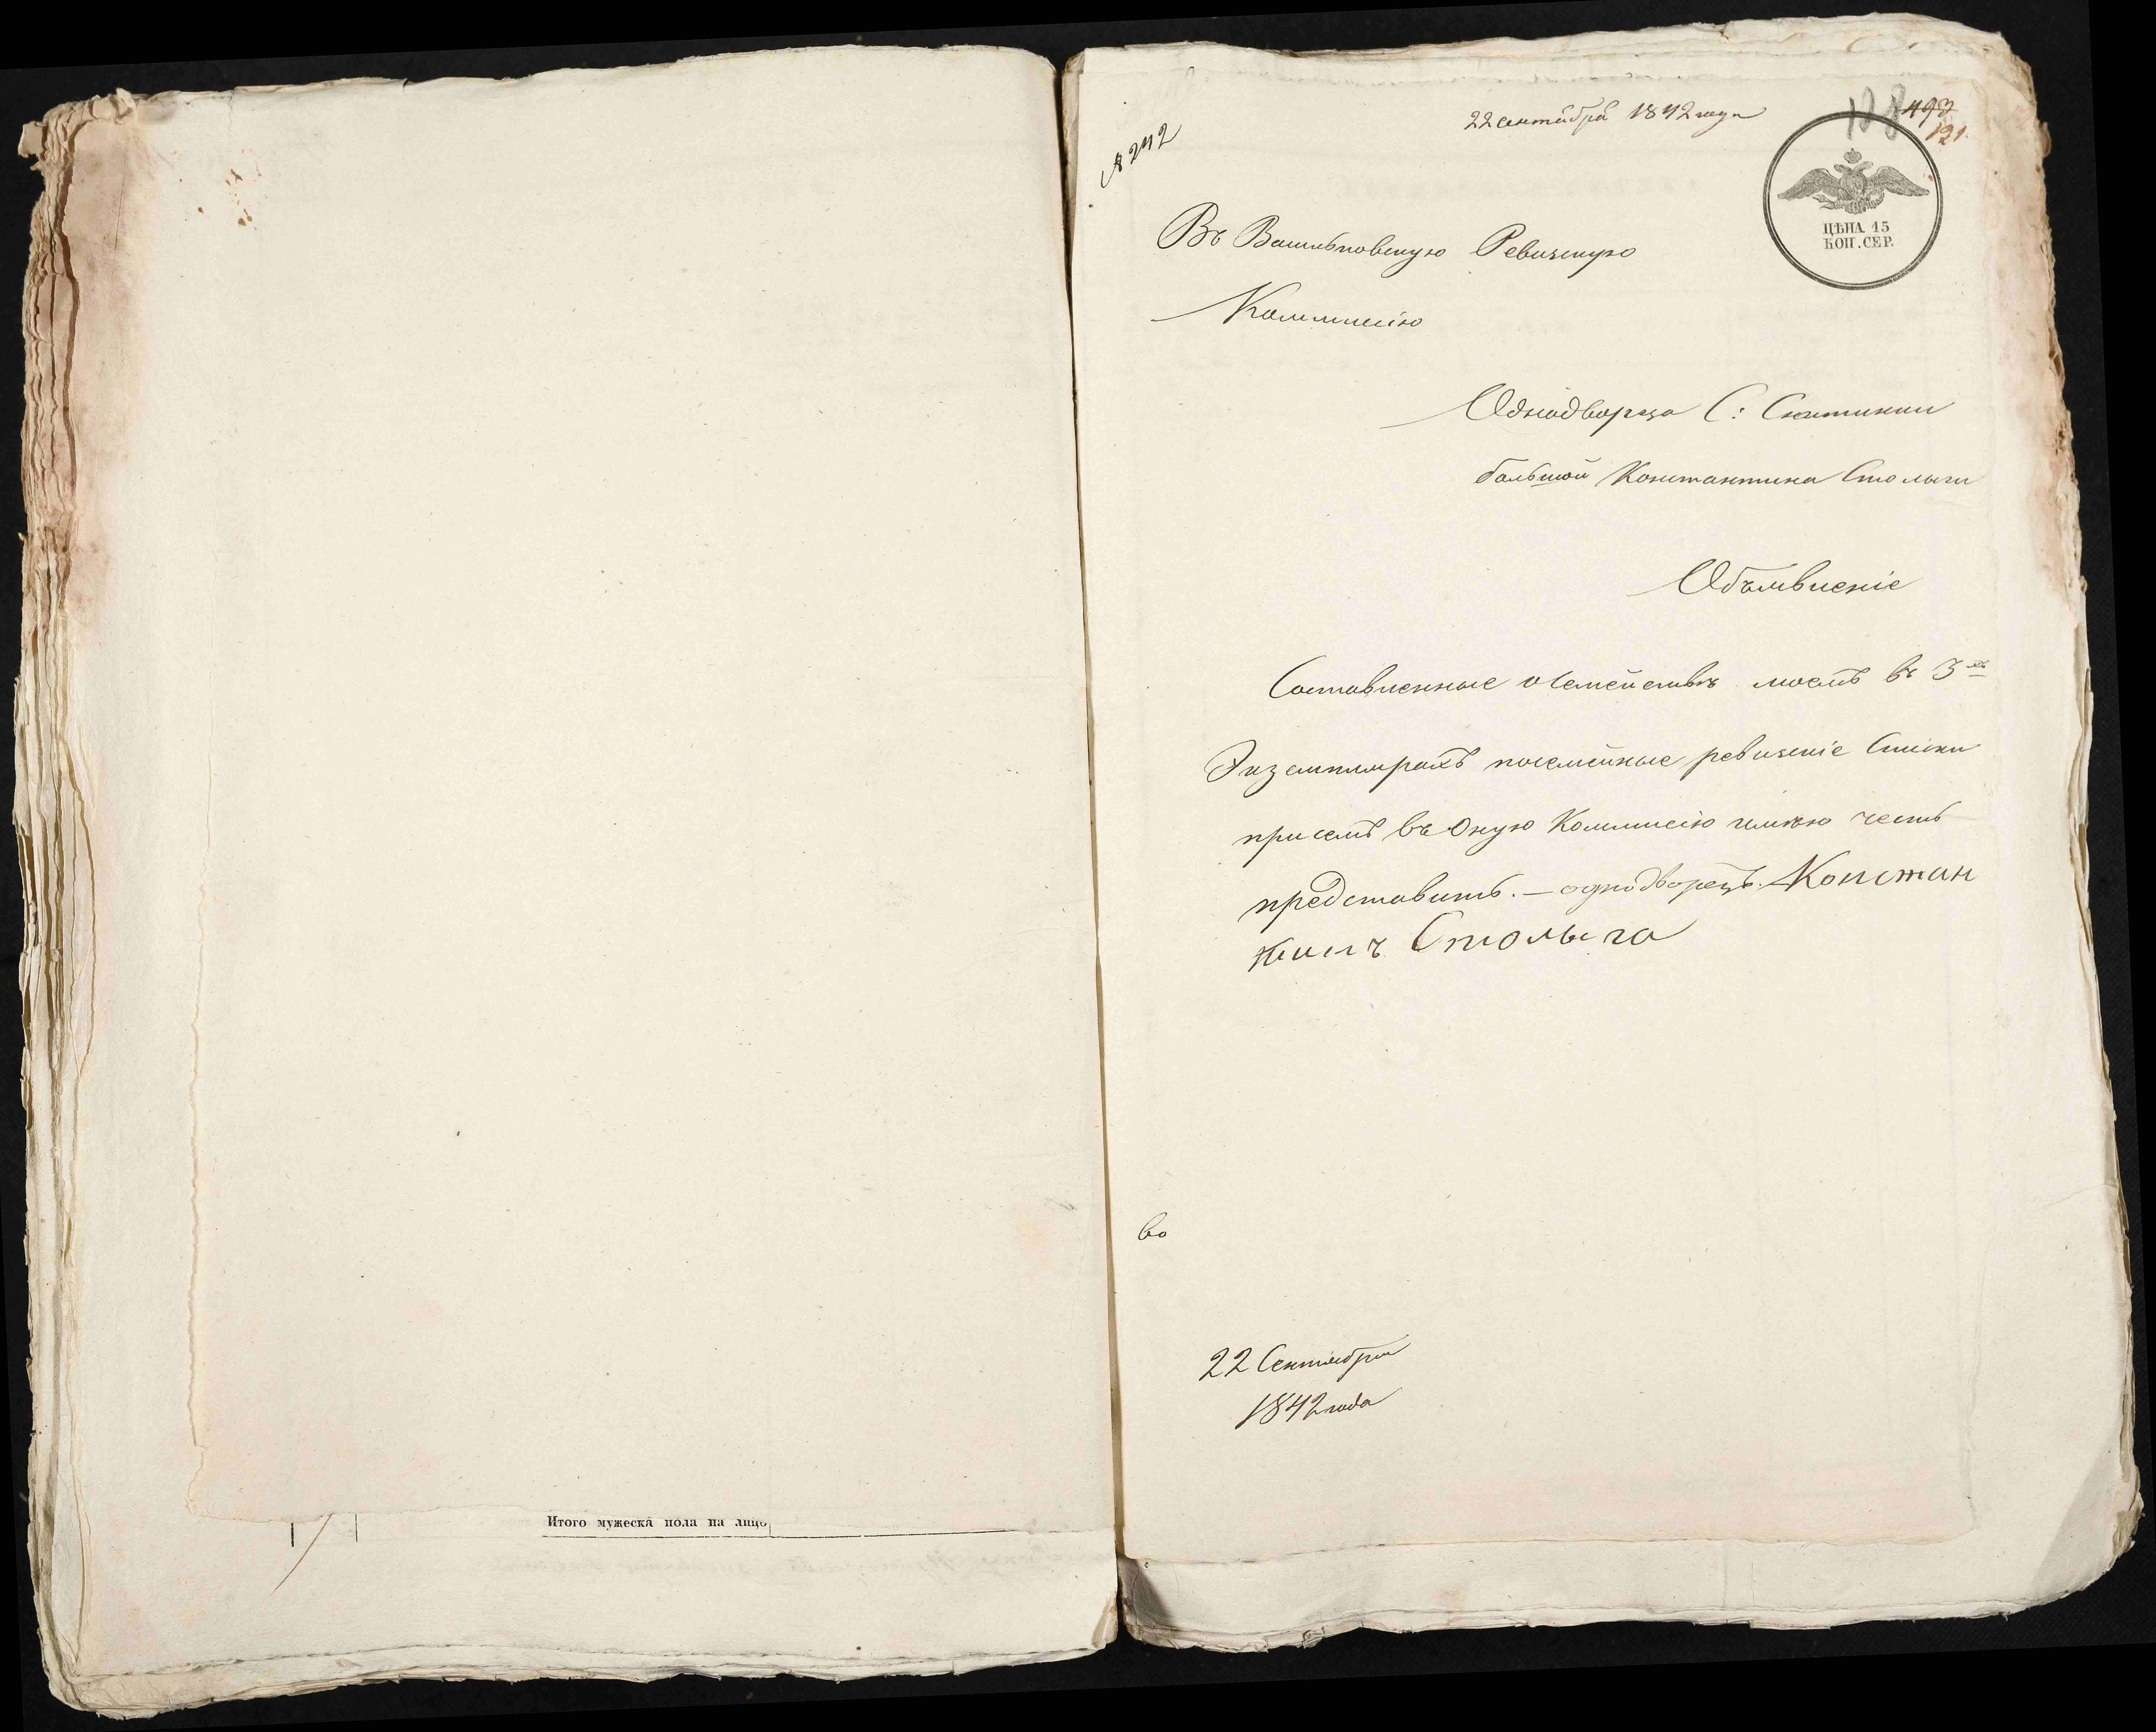 Итого мужеска пола на лицо
№ 242
22 сентября 1842 года
128 493
121.
ЦѢНА 15
КОП. СЕР.
Въ Васильковскую Ревизскую
Коммисію
Однодворца С: Снитинки
большой Константина Столыги
Объявленіе
Составленные о семействѣ моемъ въ 3хъ
Экземплярахъ посемейные ревизскіе Списки
присемъ въ Оную Коммисію имѣю честь
представить. — однодворецъ Констан
тинъ Столыга
во
22 Сентября
1842 года